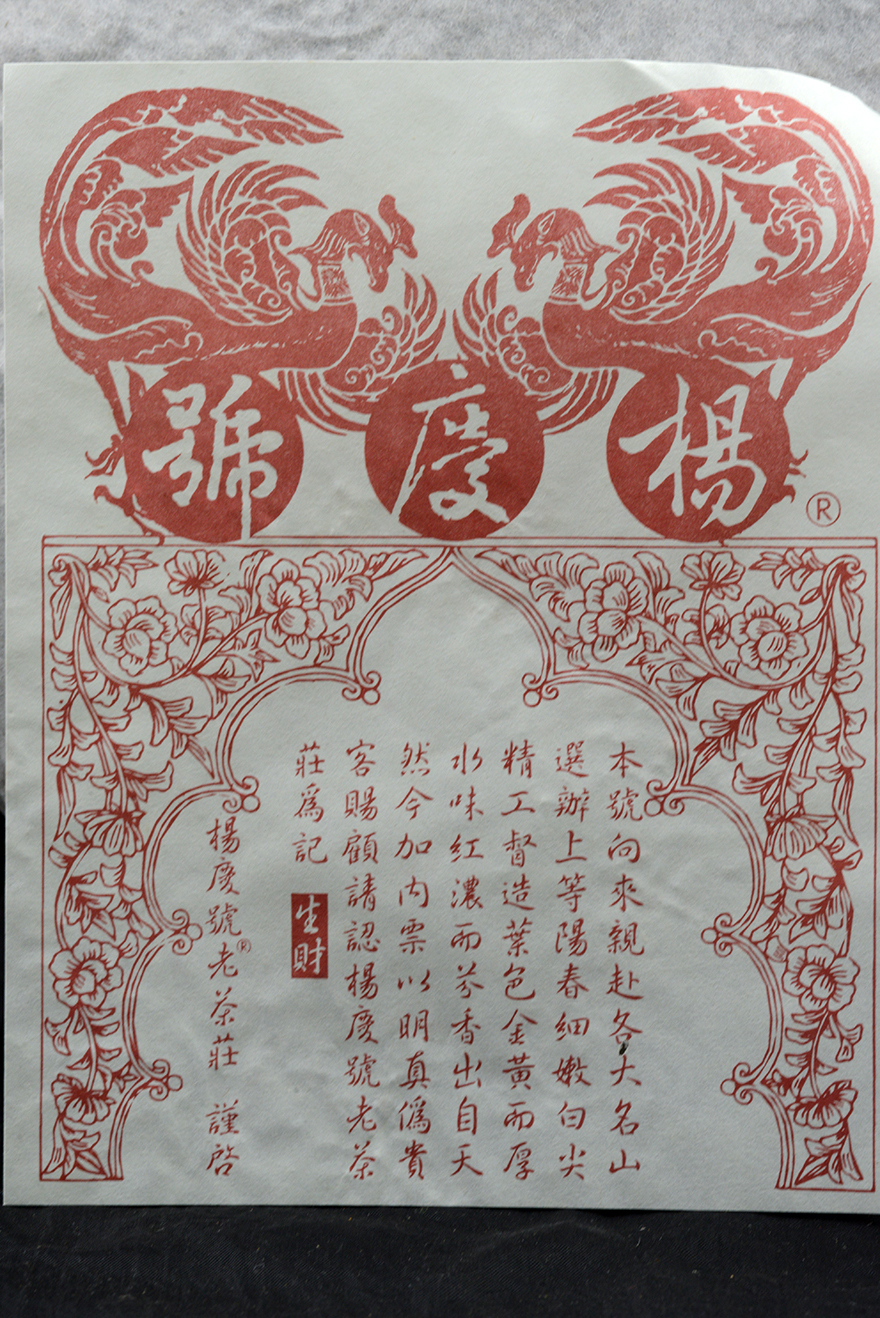 楊慶號
®
本號向來親赴各大名山
選辦上等陽春細嫩白尖
精工督造葉色金黃而厚
水味紅濃而芬香出自天
然今加內票以明真偽貴
客賜顧請認楊慶號老茶
莊爲記 生財
楊慶號®老茶莊 謹啓